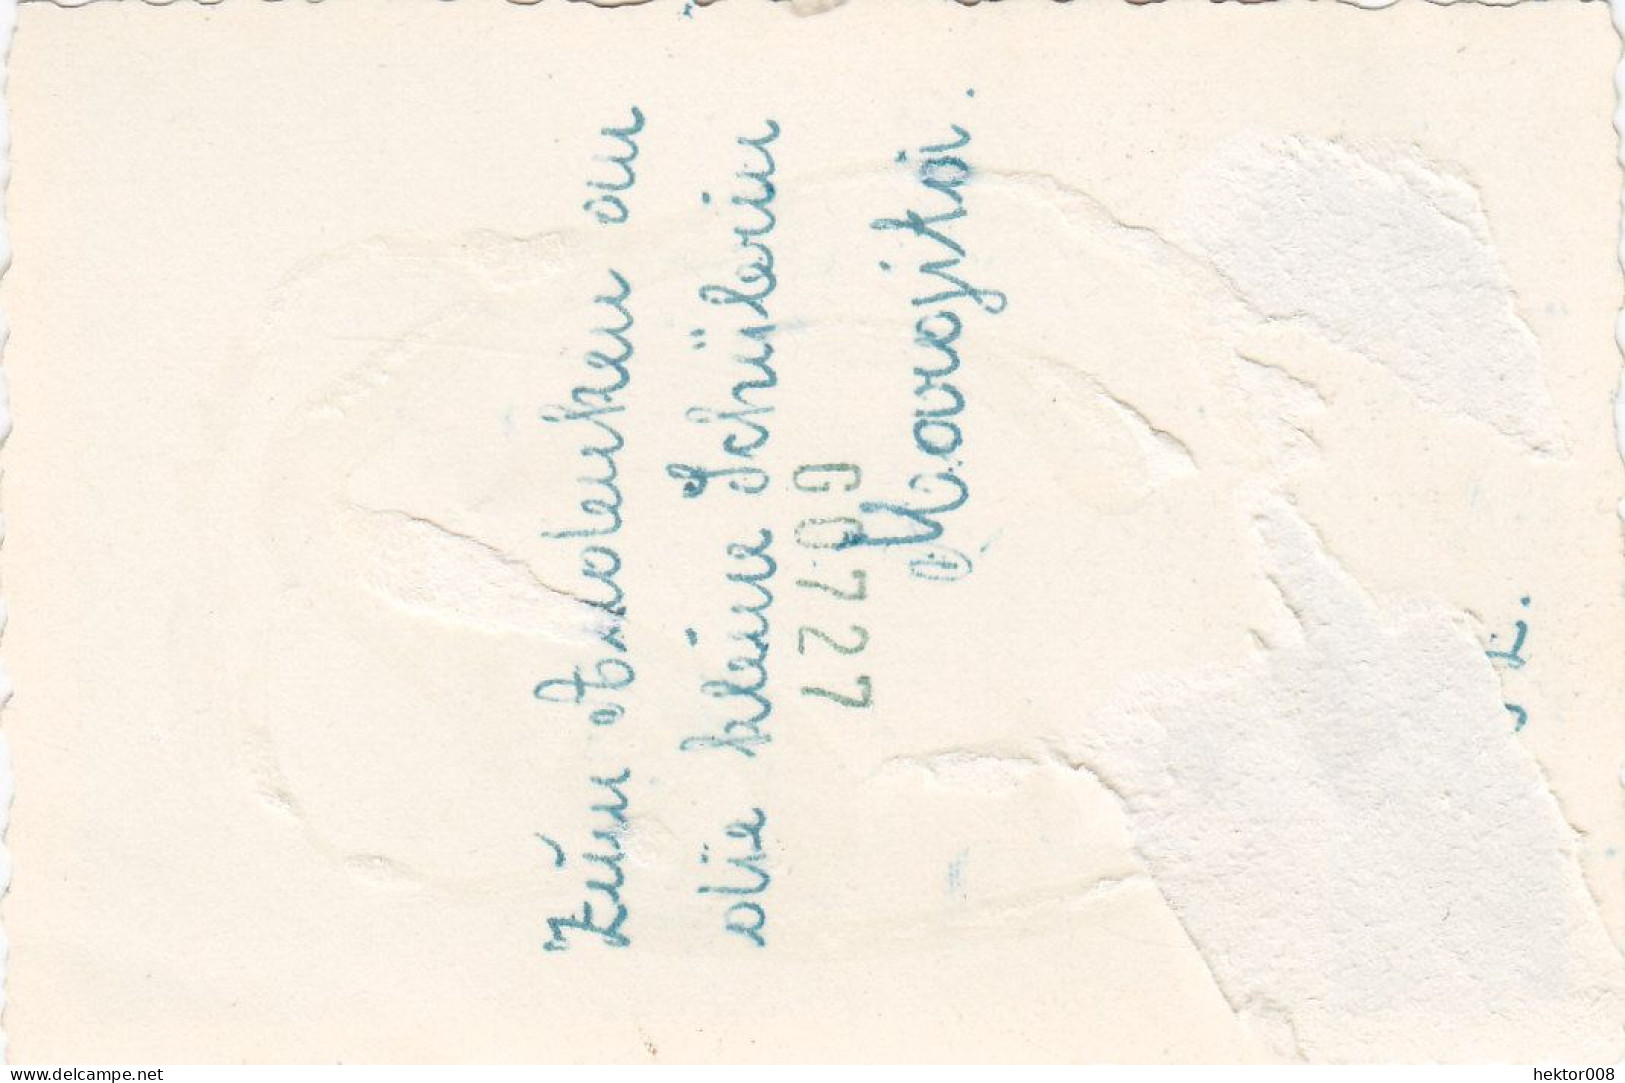 Zum Andenken an
die kleine Schülerin
G0727
www.delcampe.net
hektor008